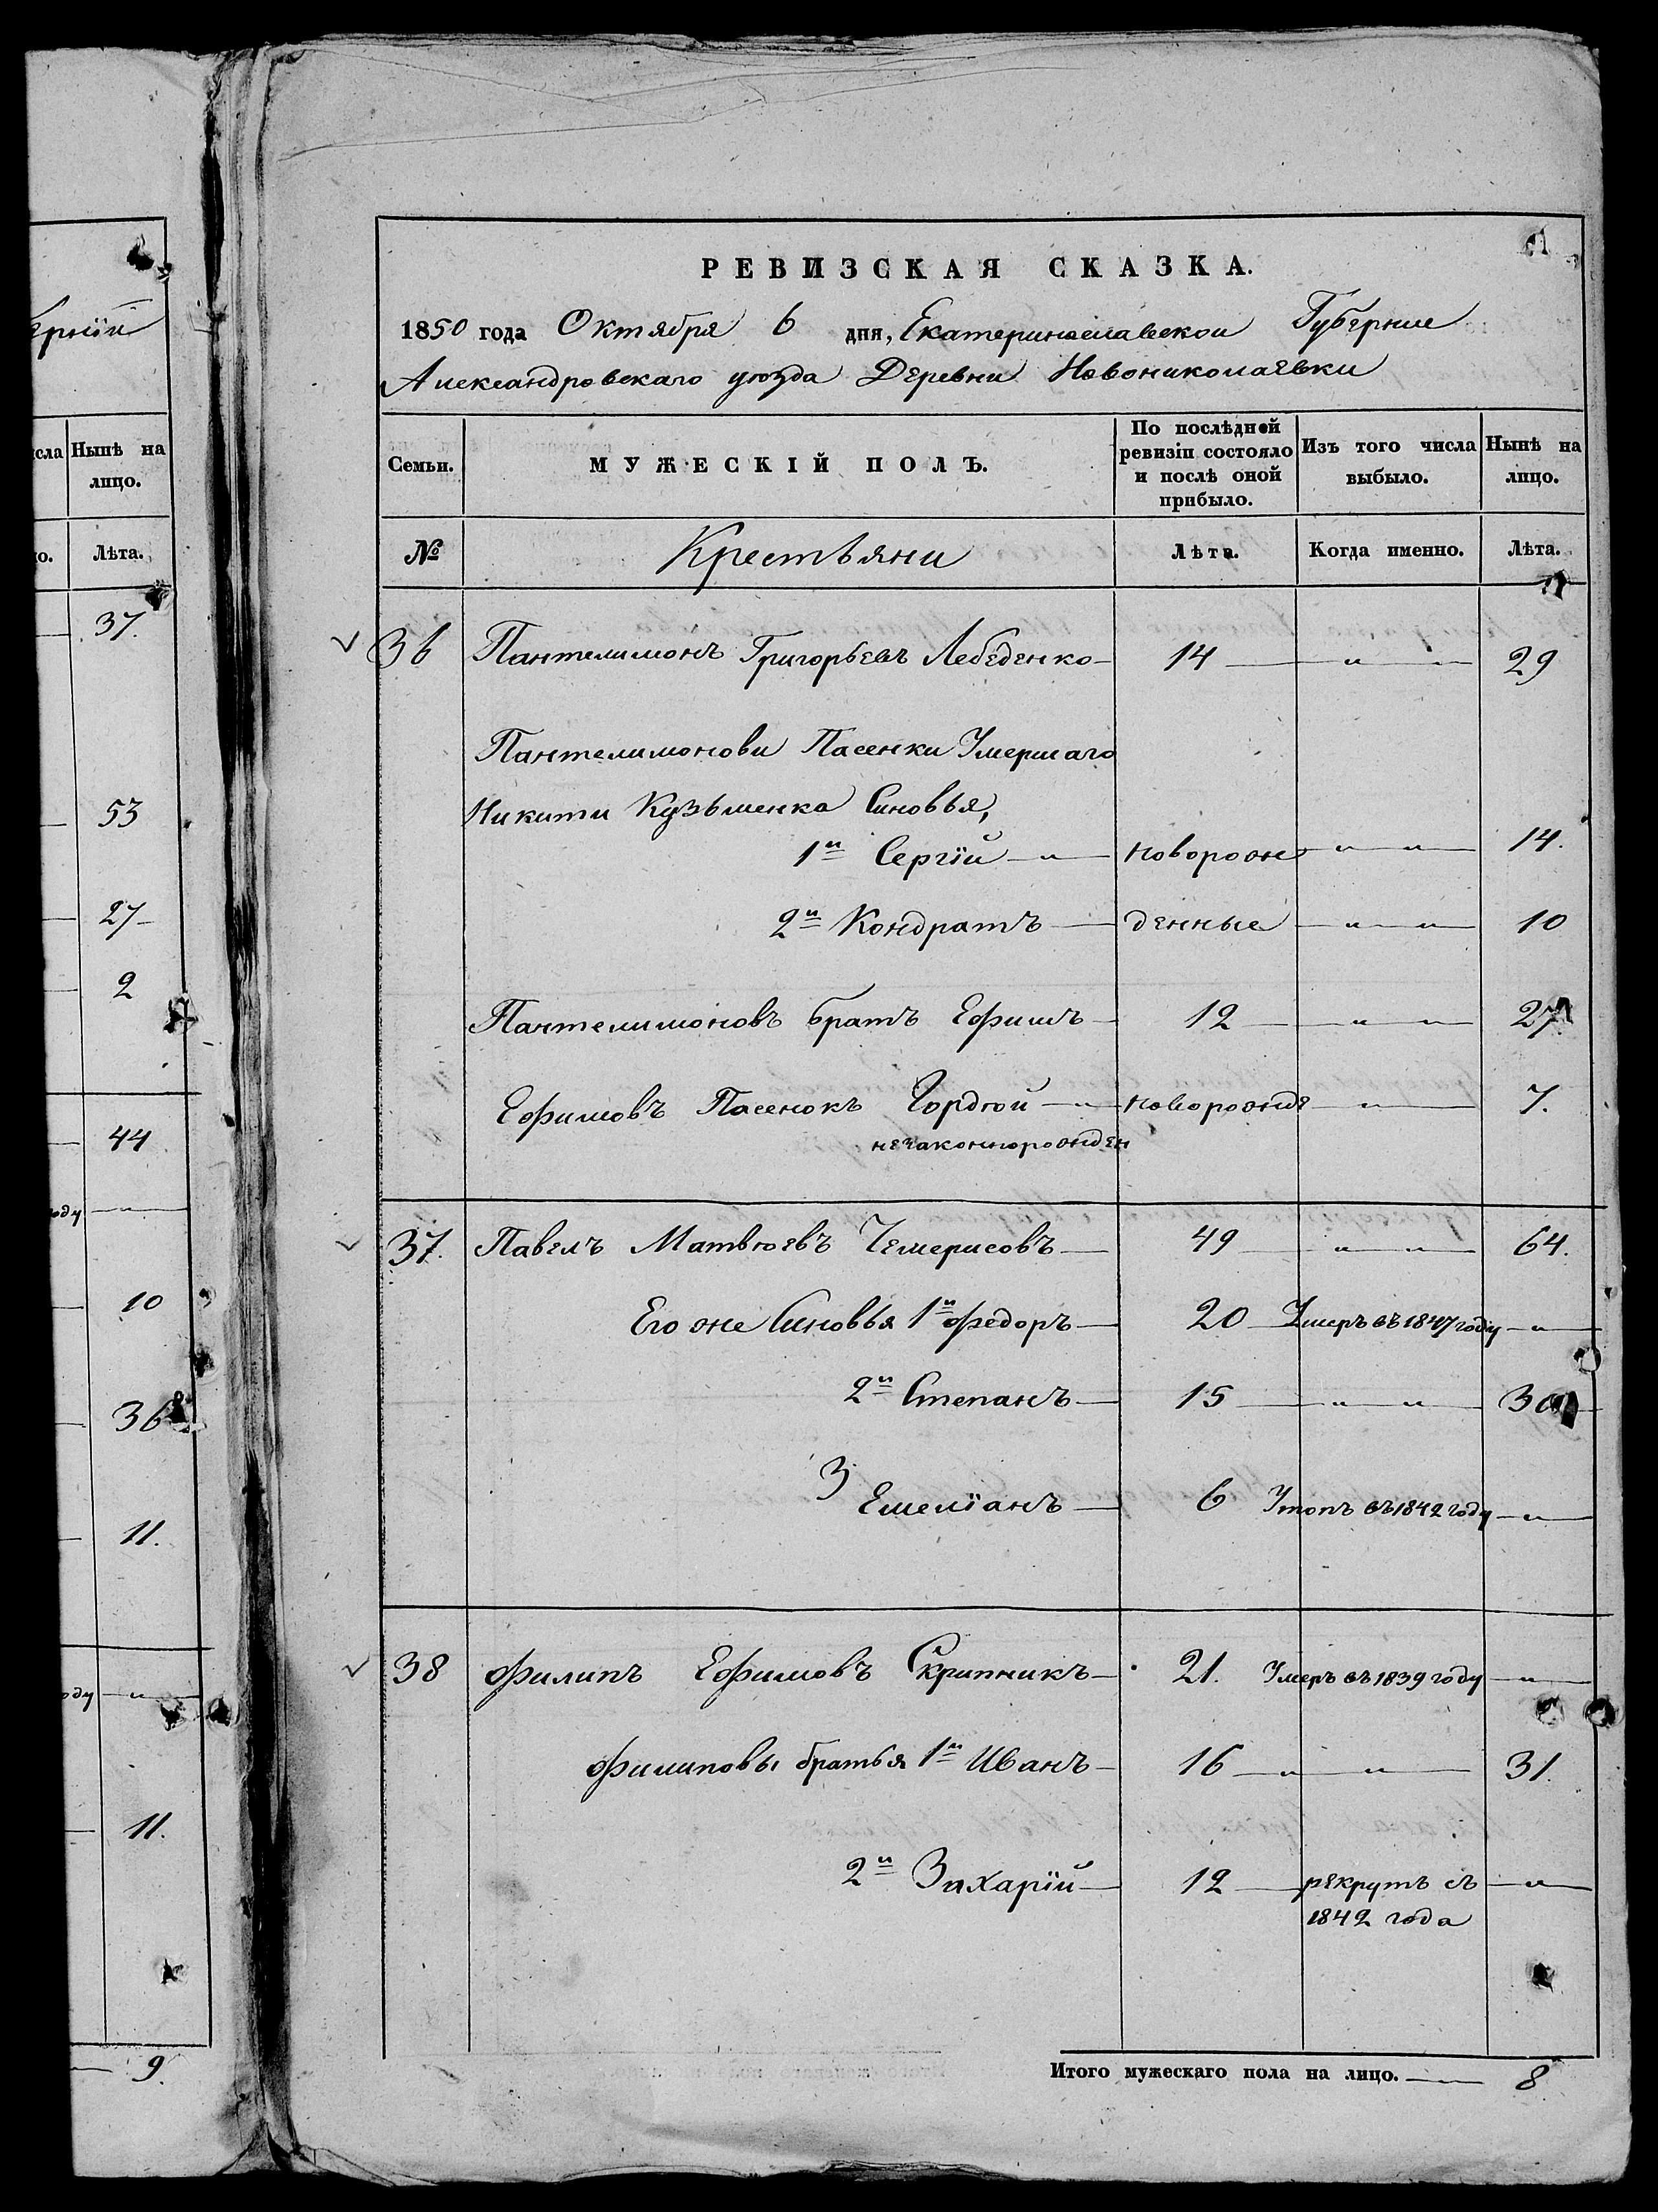 ерній
сла
Нынѣ на
лицо.
но.
Лѣта.
37.
53
27
2
44
оду
10
36
11.
оду
11.
9.
РЕВИЗСКАЯ СКАЗКА.
1850 года Октября 6 дня, Екатеринославской Губернии
Александровскаго уюзда Деревни Новониколаевки
Семьи.
МУЖЕСКІЙ ПОЛЪ.
По послѣдней
ревизіи состояло
и послѣ оной
прибыло.
Изъ того числа
выбыло.
Нынѣ на
лицо.
№
Крестьяни
Лѣта.
Когда именно.
Лѣта.
36 Пантелимонъ Григорьевъ Лебеденко 14 — „ — „ 29
Пантелимонови Пасенки Умершаго
Никити Кузьменка Синовья,
1й Сергїй — „ — новорож — „ — „ 14.
2й Кондратъ — денные — „ — „ 10
Пантелимоновъ братъ Ефимъ — 12 — „ — „ 27.
Ефимовъ Пасенокъ Гордюй — „ — новорожде — „ 7.
незаконнорожден
37. Павелъ Матвюевъ Чемерисовъ — 49 — „ — „ 64.
Его же Синовья 1й Федоръ — 20 Умеръ въ 1847 году — „
2й Степанъ — 15 — „ — „ 30
3 Емелїанъ — 6 Утопъ въ 1842 году — „
38 Филипъ Ефимовъ Скрипникъ — 21. Умеръ въ 1839 году — „
Филиповы братья 1й Иванъ — 16 — „ — „ 31.
2й Захарїй — 12 — рекрутъ съ — „
1842 года
Итого мужескаго пола на лицо. — 8.